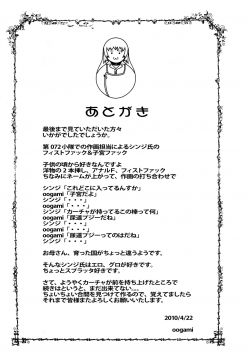 あとがき
最後まで見ていただいた方々
いかがでしたでしょうか。
第072小隊での作画担当によるシンジ氏の
フィストファック&子宮ファック
子供の頃から好きなんですよ
洋物の2本挿し、アナルF、フィストファック
ちなみにネームが上がって、作画の打ち合わせで
シンジ「これどこに入ってるんすか」
oogami「子宮だよ」
シンジ「・・・」
シンジ「カーチャが持ってるこの棒って何」
oogami「尿道ブジーだな」
シンジ「・・・」
oogami「尿道ブジーってのはだね」
シンジ「・・・」
シンジ「・・・」
お母さん、育った国がちょっと違うようです。
そんなシンジ氏はエロ、グロが好きです。
ちょっとスプラッタ好きです。
さて、ようやくカーチャが前を持ち上げたところで
続きはというと、まだ出来てない...。
ちょいちょい合間を見つけて作るので、覚えてましたら
それまで皆様またよろしくお願いいたします。
2010/4/22
oogami